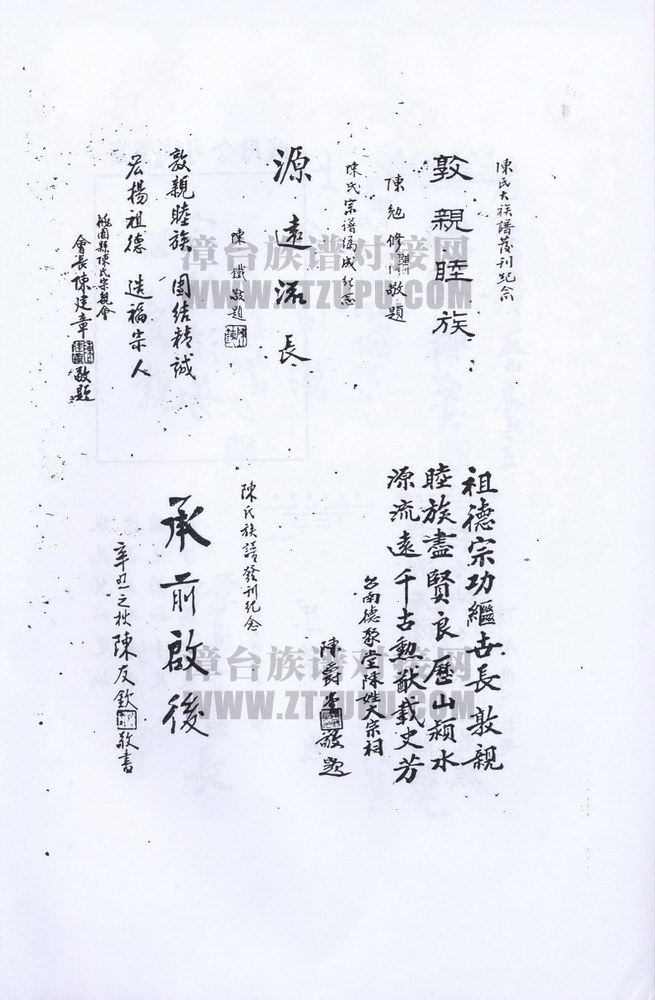 陳氏大族譜發刊紀念
敦親睦族
陳勉修敬題
陳氏宗譜編成紀念
源遠流長
陳鐵敬題
敦親睦族 團結精誠
宏揚祖德 造福宗人
桃園縣陳氏宗親會
會長陳建章敬題
祖德宗功繼古長敦親
睦族盡賢良歷山潁水
源流遠千古勳猷載史芳
台南德聚堂陳姓大宗祠
陳爵 敬題
陳氏族譜發刊紀念
承前啟後
辛丑之秋陳友欽敬書
漳台族谱对接网
WWW.ZTZUPU.COM
漳台族谱对接网
WWW.ZTZUPU.COM